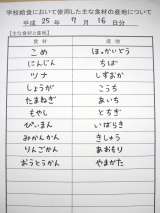 学校給食において使用した主な食材の産地について
平成 25 年 7 月 16 日分
【主な食材の産地】
食材 産地
こめ ほっかいどう
にんじん ちば
ツナ しずおか
しょうが こうち
たまねぎ あいち
もやし とちぎ
ぴいまん いばらき
みかんかん きしゅう
りんごかん あおもり
おうとうかん やまがた